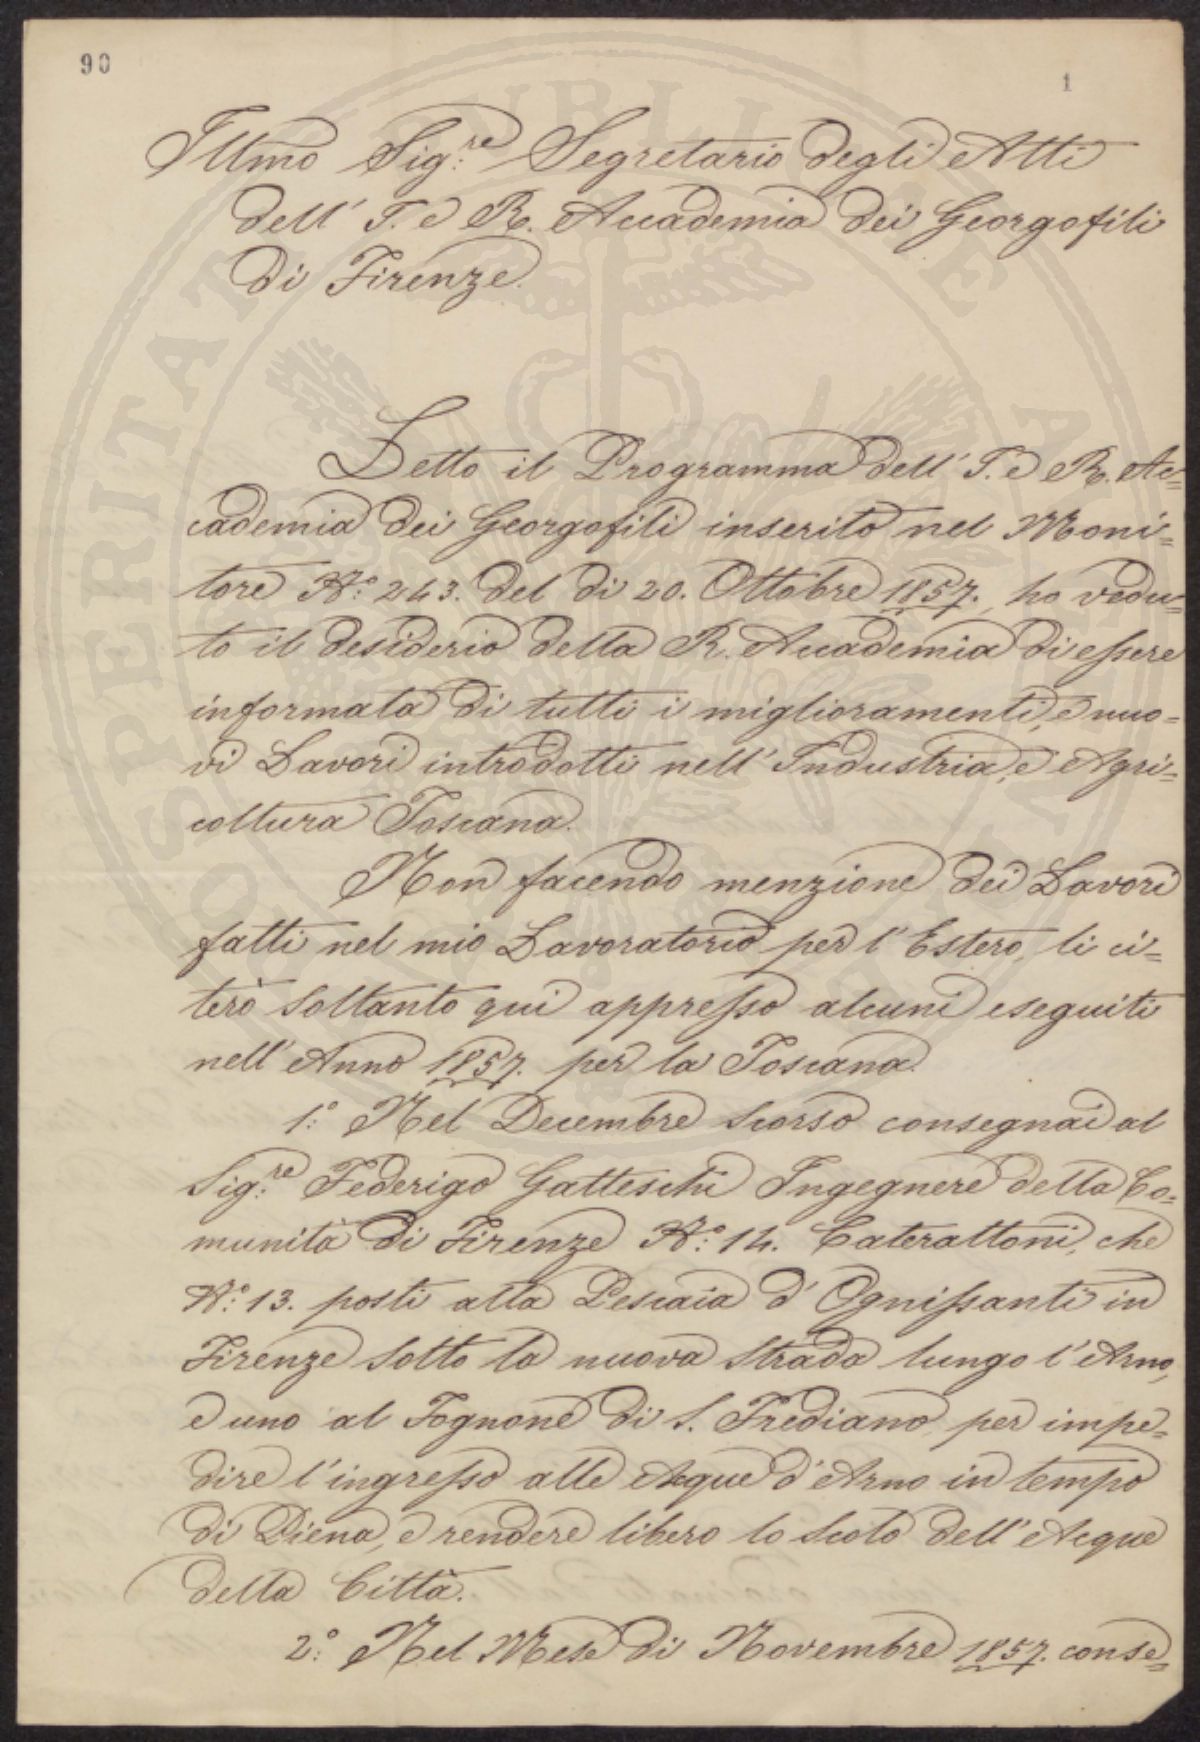 90
1
Illmo Sig:re Segretario degli Atti
dell' I. e R. Accademia dei Georgofili
di Firenze.
Letto il Programma dell' I. e R. Ac=
cademia dei Georgofili inserito nel Moni=
tore N:o 243. del dì 20. Ottobre 1857., ho vedu=
to il desiderio della R. Accademia di essere
informata di tutti i miglioramenti, e nuo=
vi Lavori introdotti nell' Industria, e Agri=
coltura Toscana.
Non facendo menzione dei Lavori
fatti nel mio Lavoratorio per l' Estero, li ci=
terò soltanto qui appresso alcuni eseguiti
nell' Anno 1857. per la Toscana.
1:o Nel Decembre scorso consegnai al
Sig:re Federigo Gatteschi Ingegnere della Co=
munità di Firenze N:o 14. Caterattoni, che
N:o 13. posti alla Pescaia d' Ognissanti in
Firenze sotto la nuova strada lungo l' Arno,
e uno al Fognone di S. Frediano per impe=
dire l' ingresso alle Acque d' Arno in tempo
di Piena, e rendere libero lo scolo dell' Acque
della Città.
2:o Nel Mese di Novembre 1857. conse=
PROSPERITATI PUBLICAE AUGENDAE